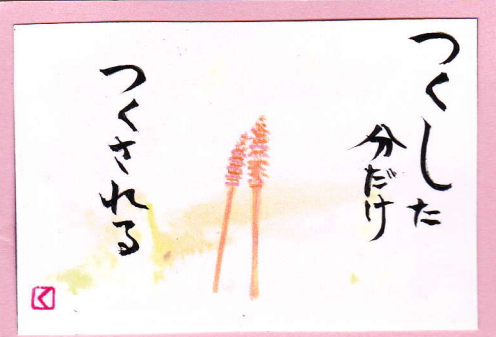 つくした
分だけ
つくされる
く